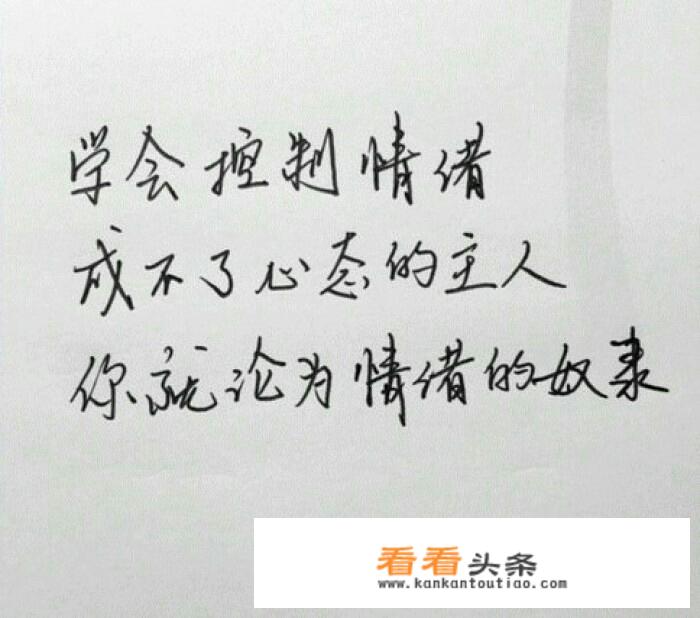 学会控制情绪
成不了心态的主人
你就沦为情绪的奴隶
看看头条
www.kankantoutiao.com